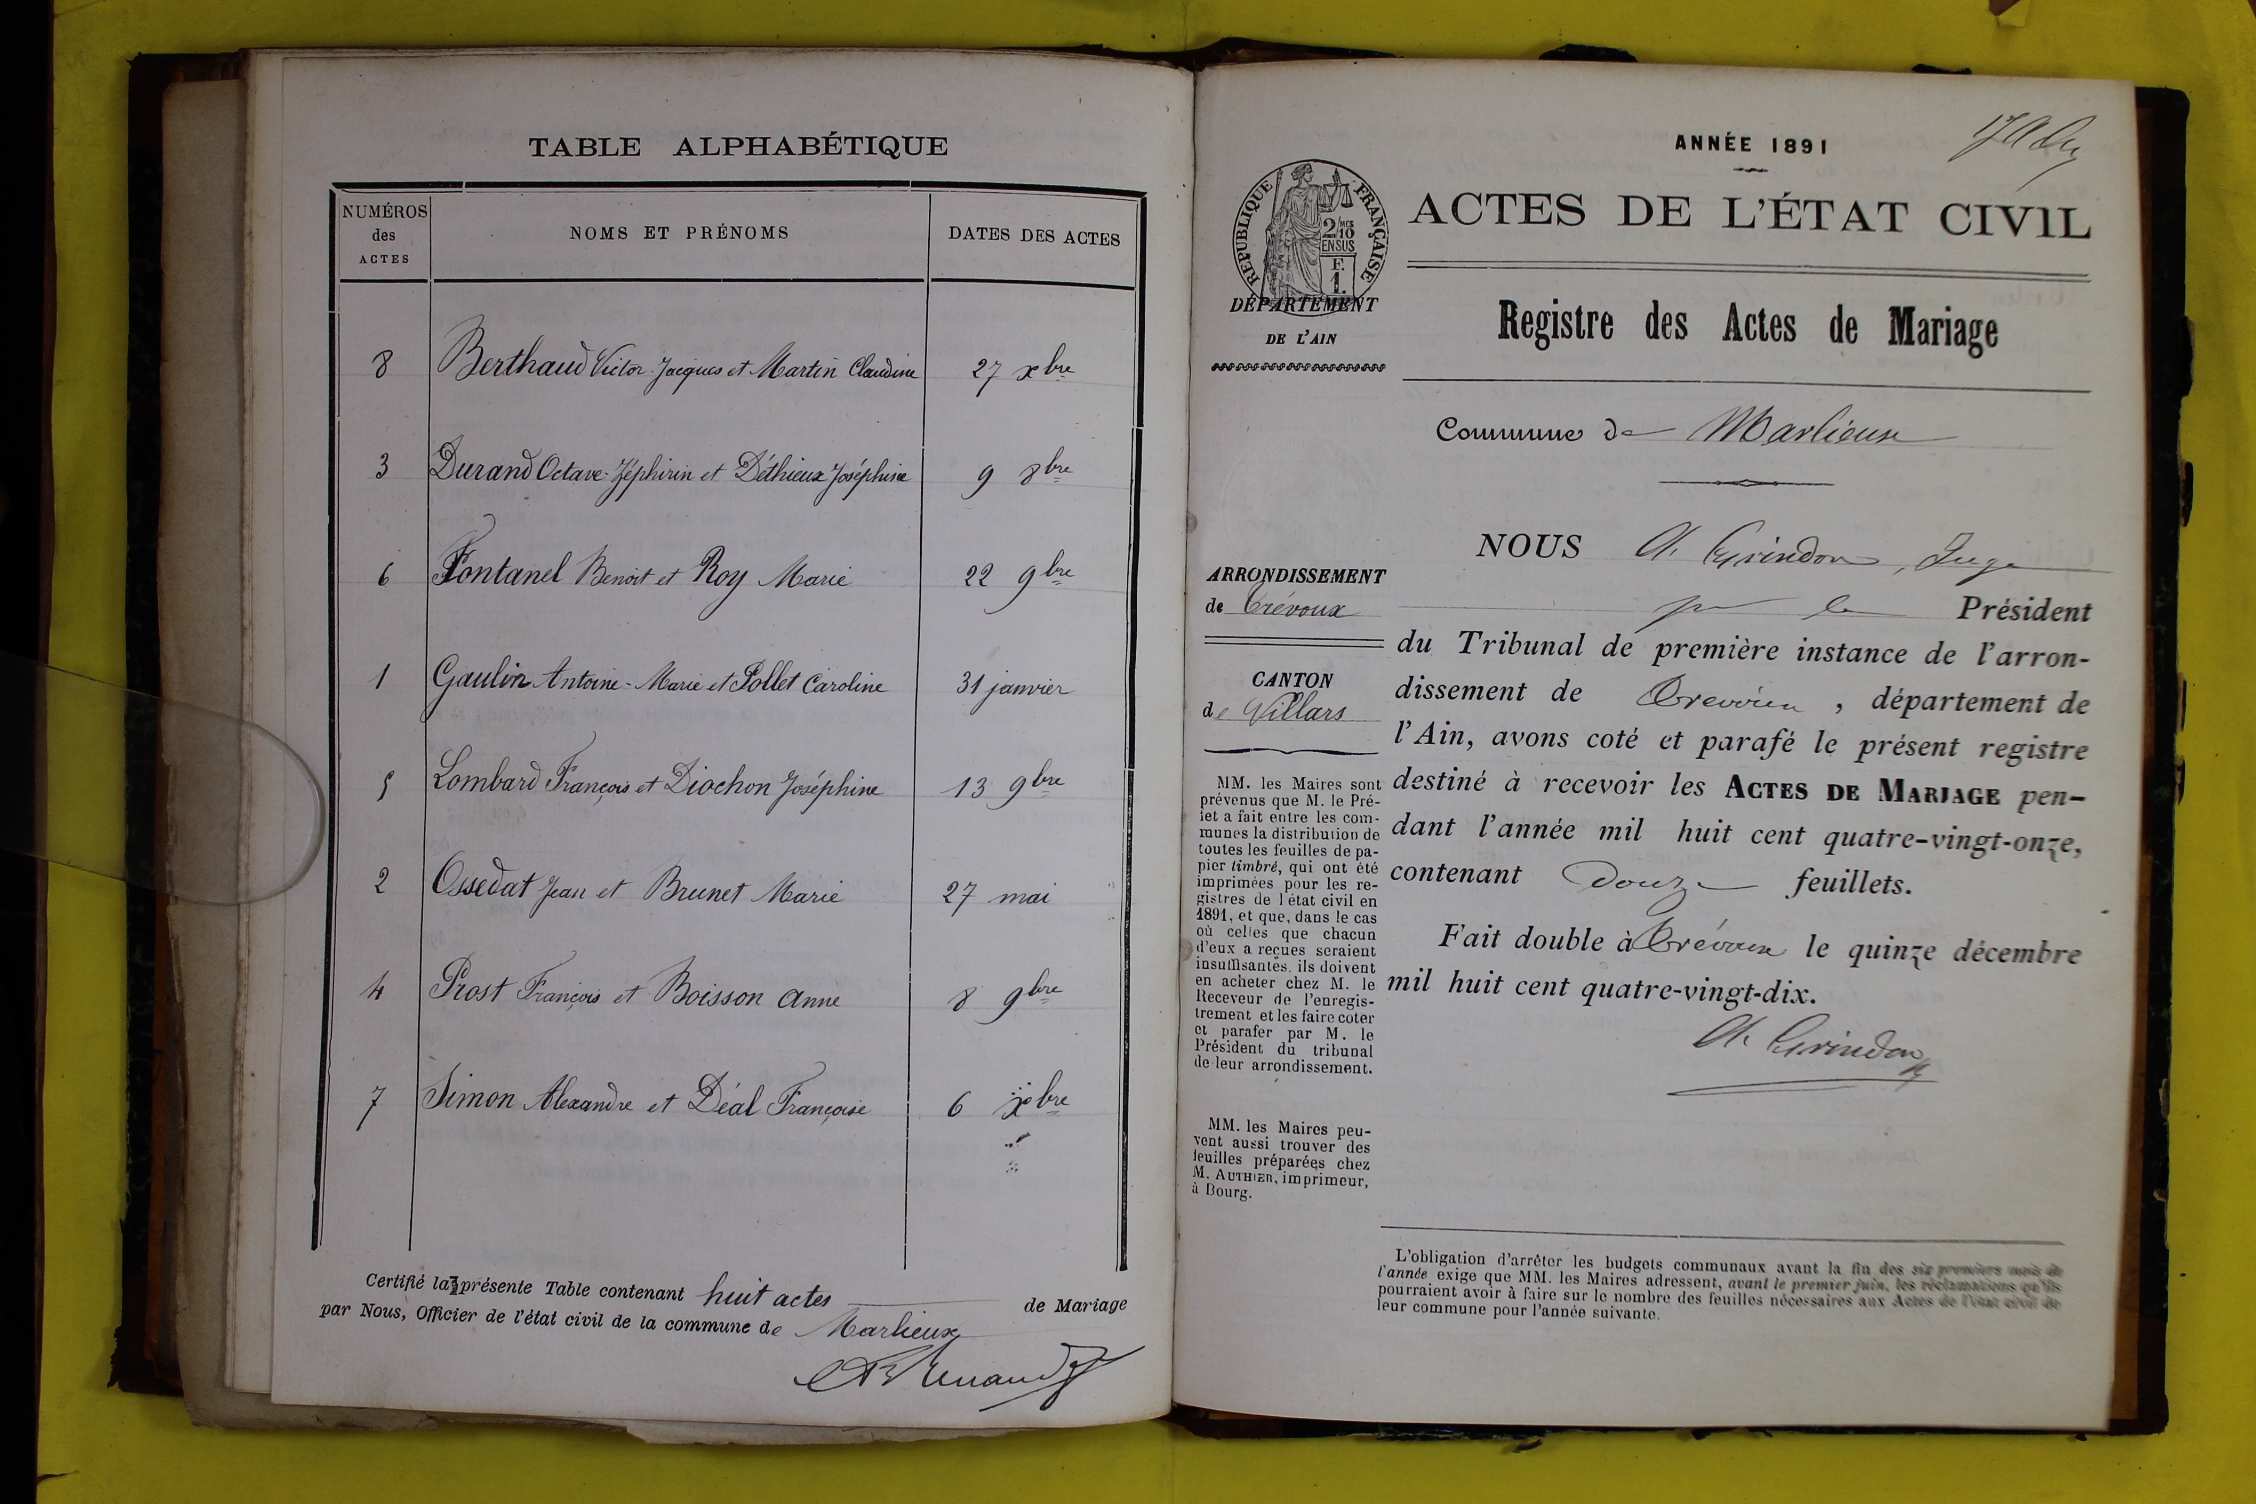 TABLE ALPHABÉTIQUE
NUMÉROS
des
ACTES
NOMS ET PRÉNOMS
DATES DES ACTES
8 Berthaud Victor-Jacques et Martin Claudine 27 xbre
3 Durand Octave-Zéphirin et Déthieux Joséphine 9 8bre
6 Fontanel Benoit et Roy Marie 22 9bre
1 Gaulin Antoine-Marie et Pollet Caroline 31 janvier
5 Lombard François et Diochon Joséphine 13 9bre
2 Ossedat Jean et Brunet Marie 27 mai
4 Prost François et Boisson Anne 8 9bre
7 Simon Alexandre et Déal Françoise 6 xbre
Certifié la présente Table contenant huit actes de Mariage
par Nous, Officier de l'état civil de la commune de Marlieux
ANNÉE 1891
ACTES DE L'ÉTAT CIVIL
RÉPUBLIQUE FRANÇAISE
2/10
EN SUS
F.
1.
DÉPARTEMENT
DE L'AIN
Registre des Actes de Mariage
Commune de Marlieux
ARRONDISSEMENT
de Trévoux
CANTON
de Villars
MM. les Maires sont
prévenus que M. le Pré-
fet a fait entre les com-
munes la distribution de
toutes les feuilles de pa-
pier timbré, qui ont été
imprimées pour les re-
gistres de l'état civil en
1891, et que, dans le cas
où celles que chacun
d'eux a reçues seraient
insuffisantes, ils doivent
en acheter chez M. le
Receveur de l'enregis-
trement et les faire coter
et parafer par M. le
Président du tribunal
de leur arrondissement.
MM. les Maires peu-
vent aussi trouver des
feuilles préparées chez
M. AUTHIER, imprimeur,
à Bourg.
NOUS A. Grindon, Juge
pr le Président
du Tribunal de première instance de l'arron-
dissement de Trévoux, département de
l'Ain, avons coté et parafé le présent registre
destiné à recevoir les ACTES DE MARIAGE pen-
dant l'année mil huit cent quatre-vingt-onze,
contenant douze feuillets.
Fait double à Trévoux le quinze décembre
mil huit cent quatre-vingt-dix.
A. Grindon
L'obligation d'arrêter les budgets communaux avant la fin des six premiers mois de
l'année exige que MM. les Maires adressent, avant le premier juin, les réclamations qu'ils
pourraient avoir à faire sur le nombre des feuilles nécessaires aux Actes de l'état civil de
leur commune pour l'année suivante.